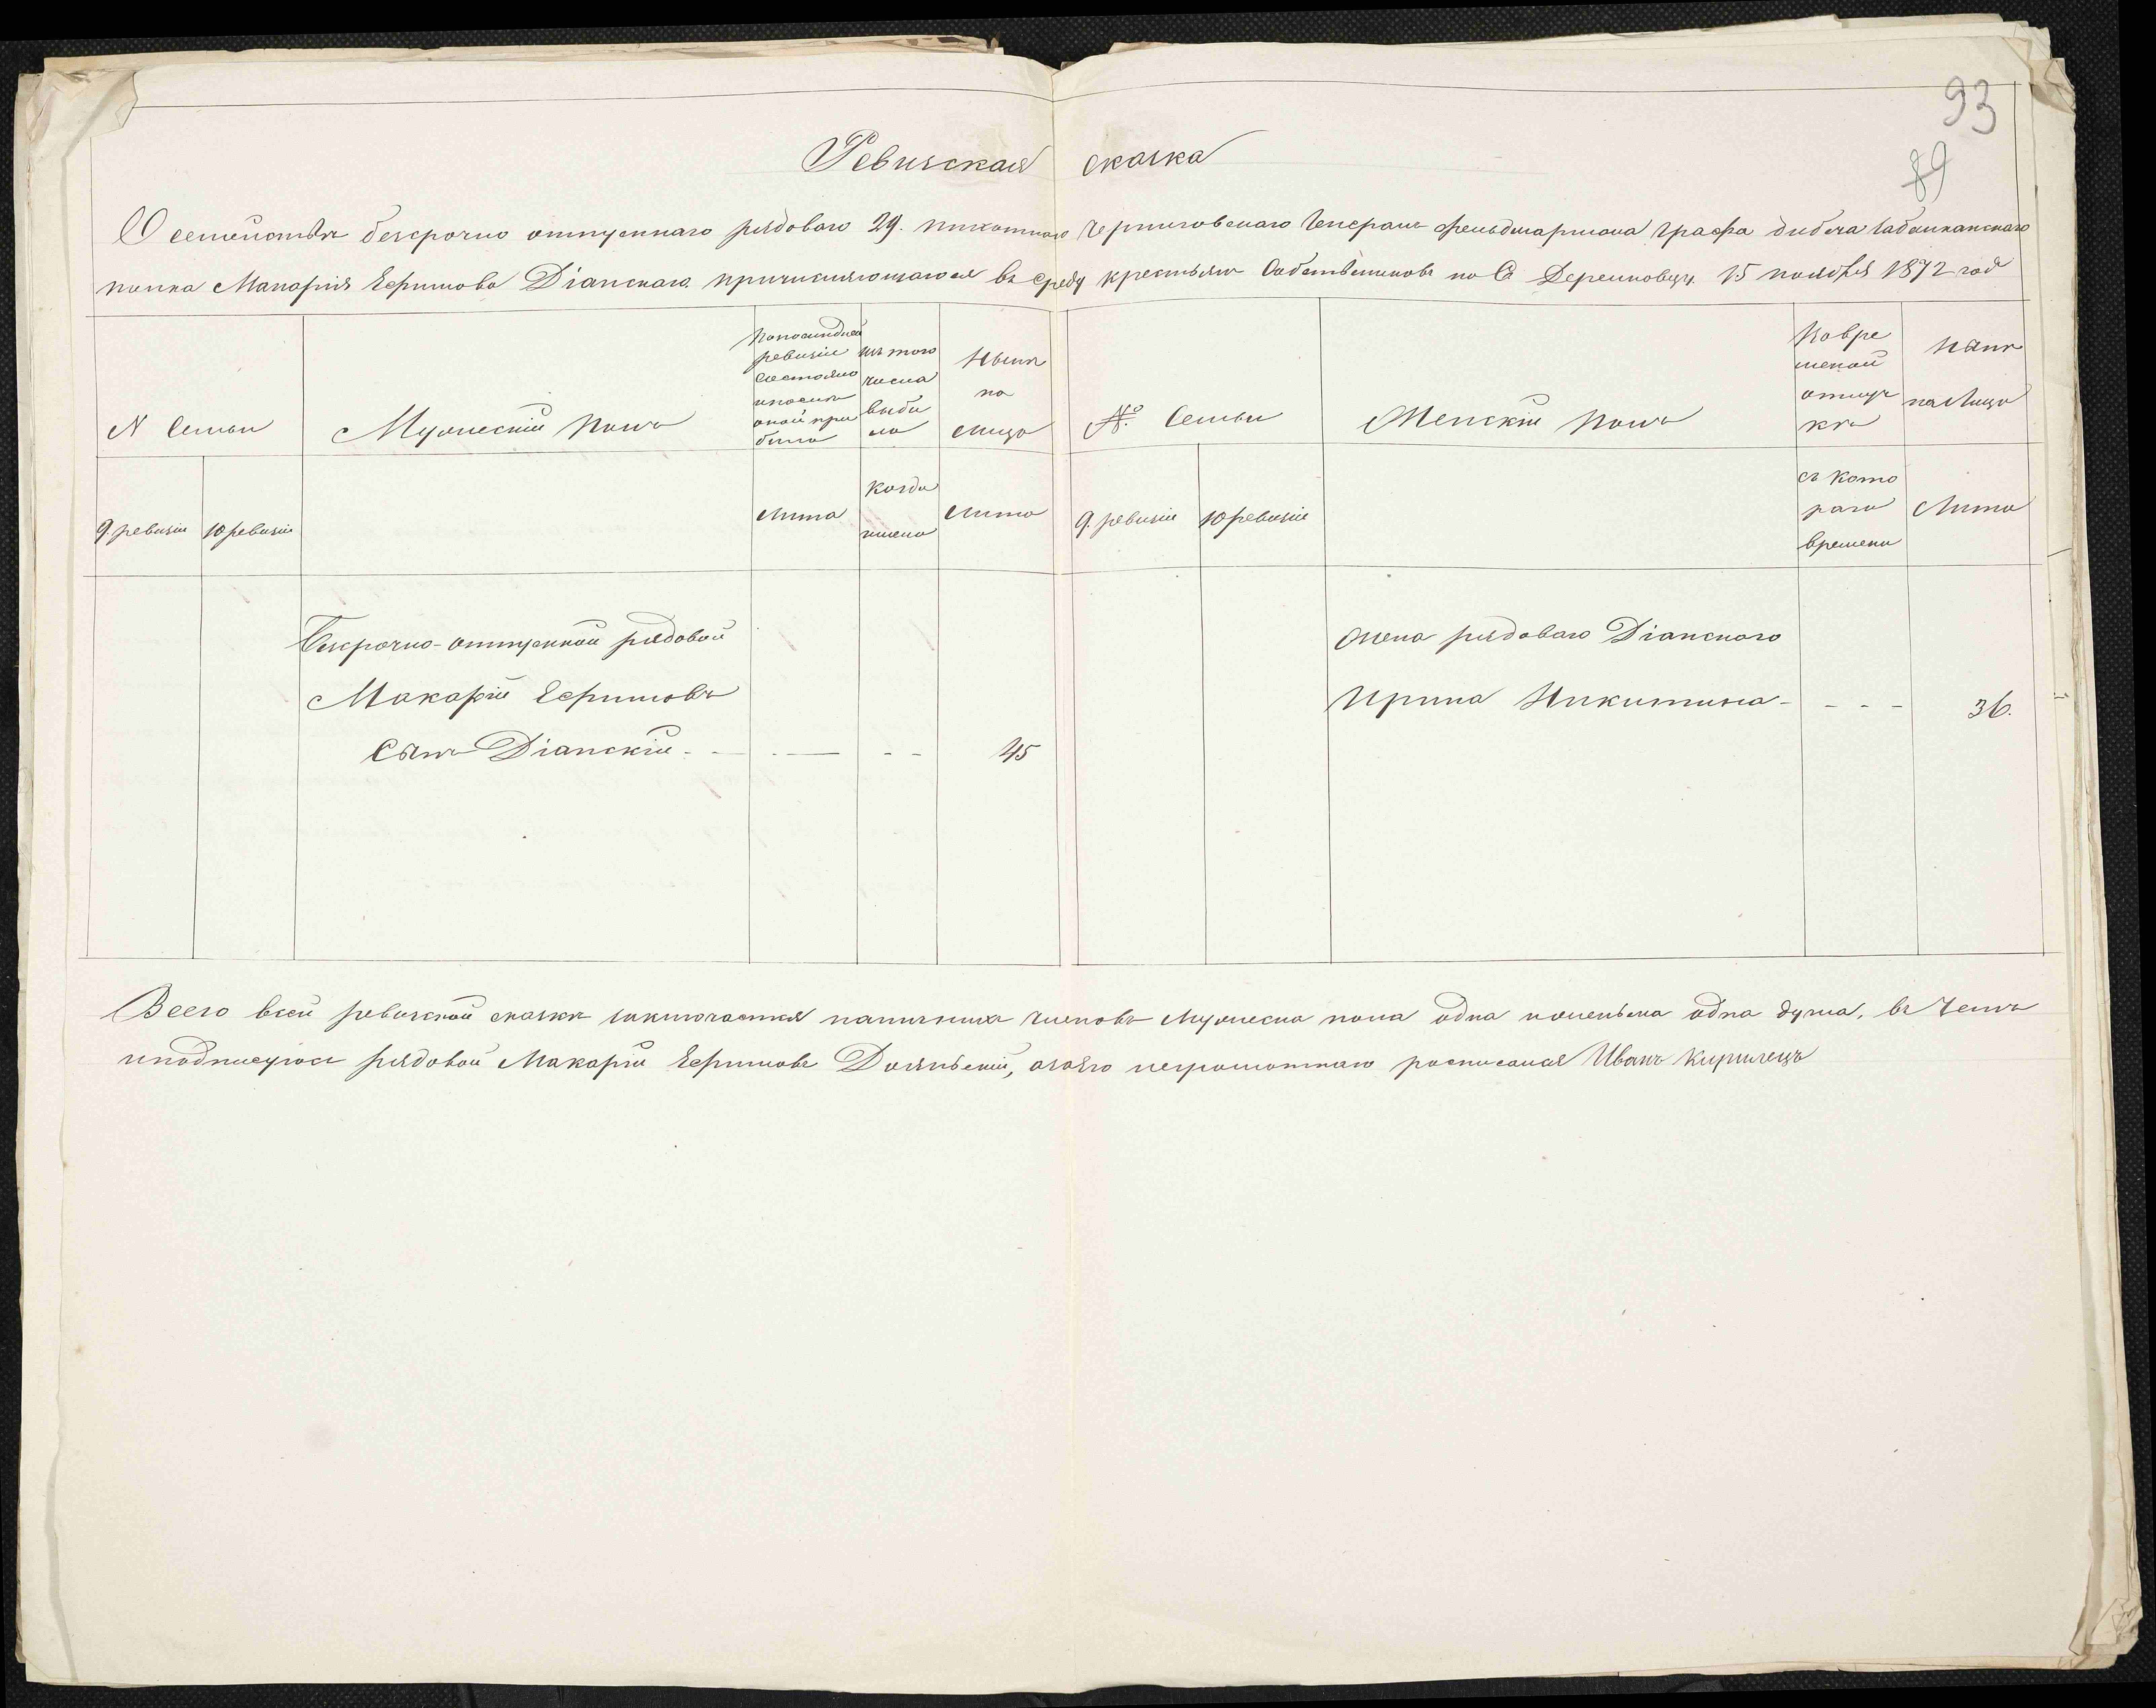 93
89
Ревизская сказка
О семействѣ безсрочно отпускнаго рядоваго 29. пихотнаго Черниговскаго Генерала фельдмаршала графа дибича Забалканскаго
полка Макарія Ефимова Діанскаго причисляющагося въ среду крестьянъ Собственниковъ по С. Деренковцу. 15 ноября 1872 год
N Семьи
Мужескій полъ
Попослидней
ревизіи
состояло
ипосли
оной при
било
изъ того
числа
выби
ло
Нынѣ
на
лицо
№ Семьи
Женскій полъ
Вовре
меной
отлуч
кѣ
Нынѣ
на Лицо
9. ревизіи
10 ревизіи
Лита
Когда
имено
Лита
9. ревизіи
10 ревизіи
съ Кото
раго
времени
Лита
Безсрочно-отпускной рядовой
Макарій Ефимовъ
Сынъ Діанскій - - - - - 45
Жена рядоваго Діанского
Ирина Никитина - - - - 36.
Всего всей ревизской сказкѣ заключается наличнихъ членовъ Мужеска пола одна ижененьска одна душа, въ Чемъ
иподписуюсь рядовой Макарій Ефимовъ Дояньский, азаго неграмотнаго росписался Иванъ Кирилецъ